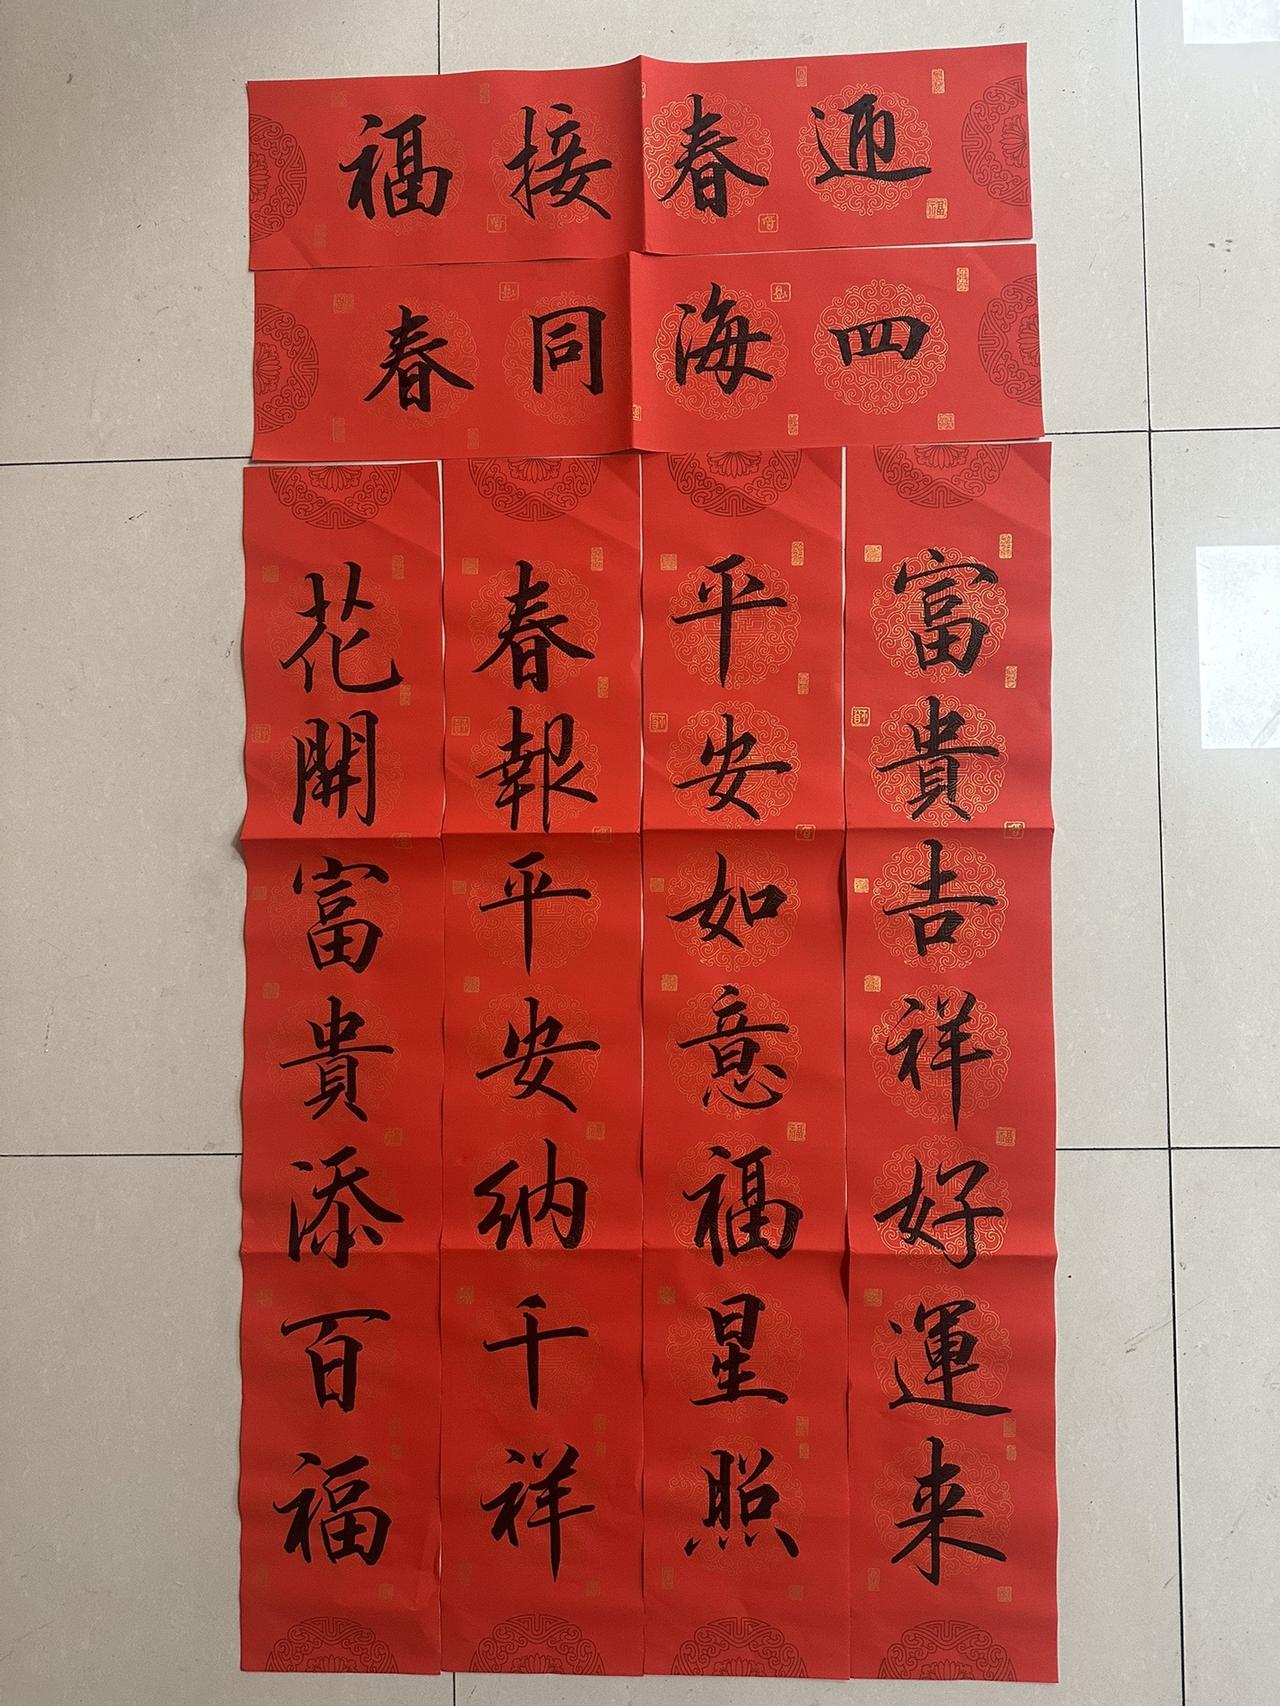 迎春接福
四海同春
富貴吉祥好運来
平安如意福星照
春報平安纳千祥
花開富貴添百福